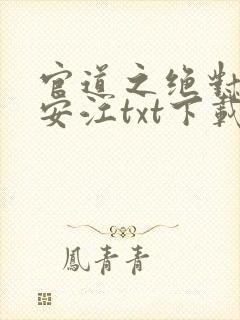 官道之绝對
安江txt下載
鳳青青